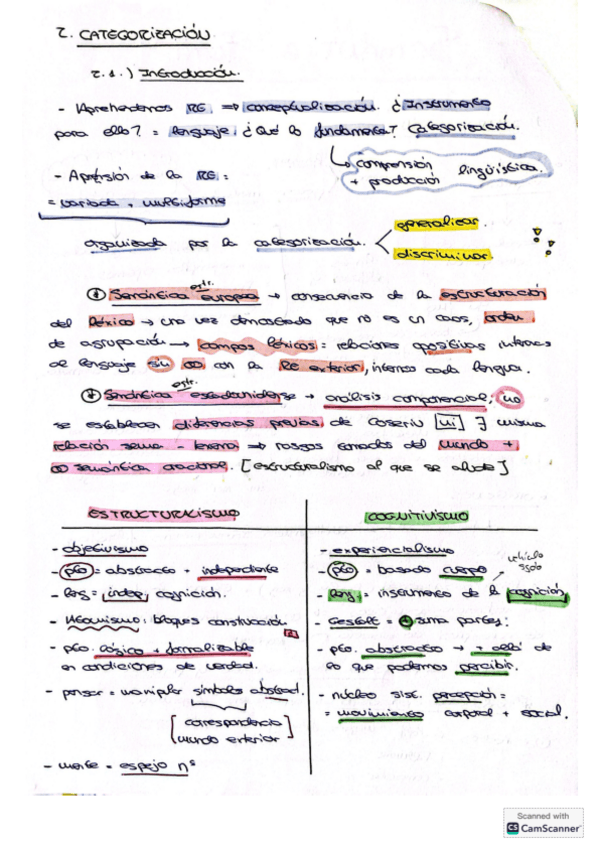 2. CATEGORIZACIÓN.
2.1.) Introducción.
- Aprehendemos RE. ⇒ conceptualización. ¿Instrumento
para ello? = lenguaje. ¿Qué lo fundamenta? Categorización.
↳ comprensión
+ producción lingüística.
- Aprehensión de la RE =
= variada, multiforme
organizada por la categorización. < generalizar.
discriminar.
estr.
① Semántica europea → consecuencia de la estructuración
del léxico → una vez demostrado que no es un caos, orden
de agrupación → campos léxicos = relaciones opositivas internas
al lenguaje sin ∞ con la RE exterior, internas cada lengua.
estr.
② Semántica estadounidense → análisis componencial, no
se establecen diferencias previas de Coseriu misma
relación sema - lexema → rasgos tomados del mundo +
∞ semántica oracional. [estructuralismo al que se alude]
ESTRUCTURALISMO
COGNITIVISMO
- objetivismo
- pto = abstracto + independiente
- leng = indep. cognición.
- Atomismo: bloques construcción
- pto. lógico + formalizable
en condiciones de verdad.
- pensar = manipular símbolos abstrad.
[correspondencia
mundo exterior]
- mente = espejo nº
- experiencialismo
vehículo
- pto = basado cuerpo
- leng. = instrumento de la cognición
- Gestalt = suma partes:
- pto. abstracto → + allá de
lo que podemos percibir.
- núcleo sist. percepción =
= movimiento corporal + social.
Scanned with
CS CamScanner